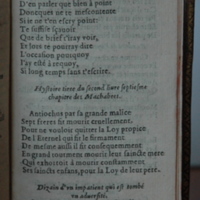 D'en parler que bien à point
Doncques ne te mescontente
Si ie t'en escry point:
Te suffise sçauoir
Que de brief i'iray voir,
Et lors te pourray dire
L'occasion pourquoy
I'ay esté à requoy,
Si long temps sans t'escrire.
Hystoire tiree du second liure septiesme
chapitre des Machabees.
Antiochus par sa grande malice
Sept freres fit mourir cruellement.
Pour ne vouloir quitter la Loy propice
De l'Eternel qui fit le firmament
De mesme aussi il fit consequemment
En grand tourment mourir leur saincte mere
Qui exhortoit à mourir constamment
Ses saincts enfans, pour la Loy de leur pere.
Dizain d'un impatient qui est tombé
en aduersité.